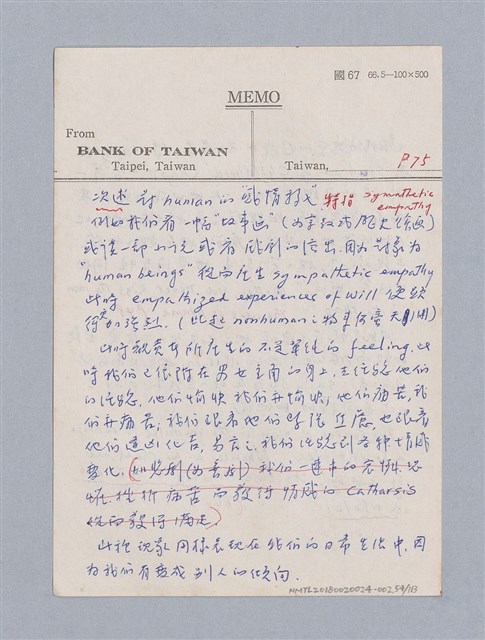 國 67 66.5—100×500
MEMO
From
BANK OF TAIWAN
Taipei, Taiwan
Taiwan,
P75
次述 對 human in "感情移入" 特指 sympathetic
empathy
例如我們看一幅 "故事画" (為宗教或歷史繪画)
或讀一部小說或看戲劇的演出. 因為對象為
"human beings" 從而产生 sympathetic empathy
此時 empathized experiences of will 便顯
得更加強烈. (比起 nonhuman 物來何啻天別)
此時就責所产生的不是單純的 feeling. 此
時我們已依附在男女主角的身上. 去経驗他們
的経驗, 他們愉快我們亦愉快; 他們痛苦, 我
們亦痛苦; 我們跟着他們 也跟着
他們逢凶化吉, 易言之, 我們経驗到各種情感
變化. (如悲劇 我們一連串的 恐
怖 挫折 痛苦 而獲得情感的 Catharsis
從而獲得滿足.)
此種現象同樣表現在我們的日常生活中, 因
為我們有變成別人的傾向.
NMTL20180020024-002,54/113